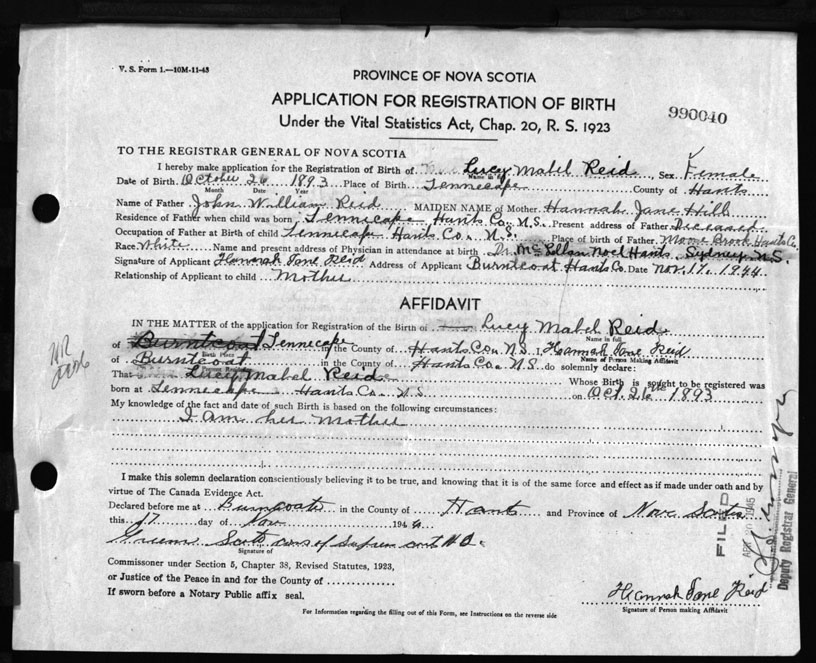 V. S. Form 1.—10M-11-43
PROVINCE OF NOVA SCOTIA
APPLICATION FOR REGISTRATION OF BIRTH
990040
Under the Vital Statistics Act, Chap. 20, R. S. 1923
TO THE REGISTRAR GENERAL OF NOVA SCOTIA
I hereby make application for the Registration of Birth of Lucy Mabel Reid, Sex Female
Date of Birth October 26 1893 Place of Birth Tennecape County of Hants
Month Date Year
Name of Father John William Reid MAIDEN NAME of Mother Hannah Jane Hill
Residence of Father when child was born Tennecape Hants Co. N.S. Present address of Father Deceased
Occupation of Father at Birth of child Tennecape Hants Co. N.S. Place of birth of Father Moose Brook Hants Co
Race White Name and present address of Physician in attendance at birth Dr. McLellan Noel Hants Sydney N.S.
Signature of Applicant Hannah Jane Reid Address of Applicant Burntcoat Hants Co. Date Nov. 17. 1944
Relationship of Applicant to child Mother
AFFIDAVIT
IN THE MATTER of the application for Registration of the Birth of Lucy Mabel Reid
Name in full
of Burntcoat Tennecape in the County of Hants Co. N.S. I Hannah Jane Reid
Birth Place Name of Person Making Affidavit
of Burntcoat in the County of Hants Co. N.S. do solemnly declare:
That Lucy Mabel Reid Whose Birth is sought to be registered was
born at Tennecape Hants Co. N.S. on Oct. 26 1893
My knowledge of the fact and date of such Birth is based on the following circumstances:
I am her mother
I make this solemn declaration conscientiously believing it to be true, and knowing that it is of the same force and effect as if made under oath and by
virtue of The Canada Evidence Act.
Declared before me at Burncoate in the County of Hants and Province of Nova Scotia
this 17 day of Nov 1944
Signature of
Commissoner under Section 5, Chapter 38, Revised Statutes, 1923,
or Justice of the Peace in and for the County of
If sworn before a Notary Public affix seal.
Hannah Jane Reid
Signature of Person making Affidavit
For Information regarding the filling out of this Form, see Instructions on the reverse side
FILED
1945
Deputy Registrar General